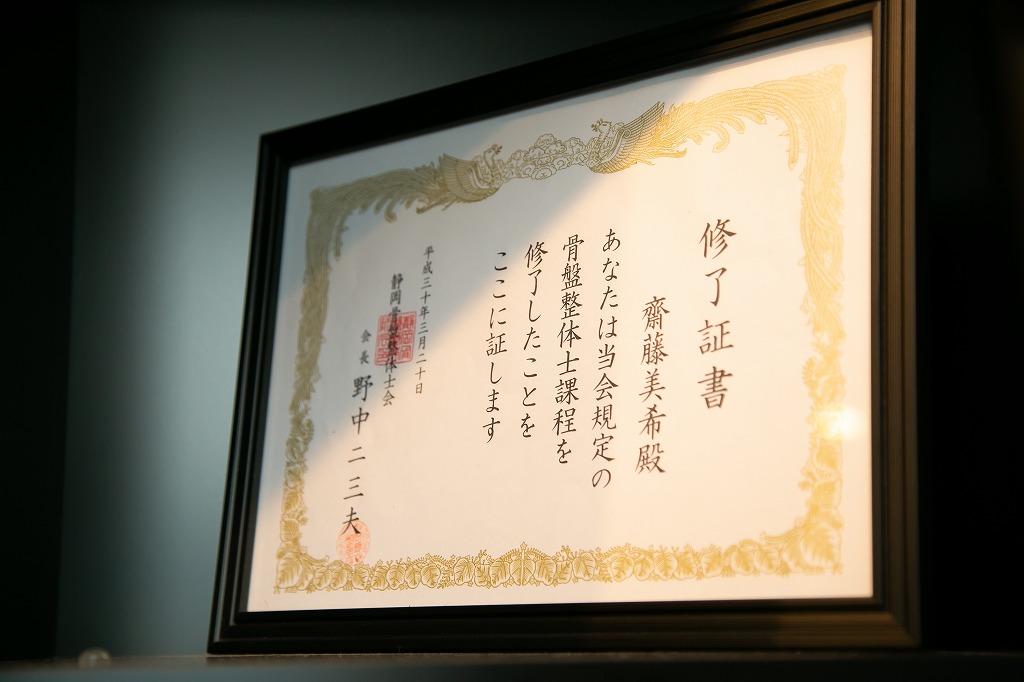 修了証書
齋藤美希殿
あなたは当会規定の
骨盤整体士課程を
修了したことを
ここに証します
平成三十年三月二十日
静岡骨盤整体士会
会長 野中二三夫